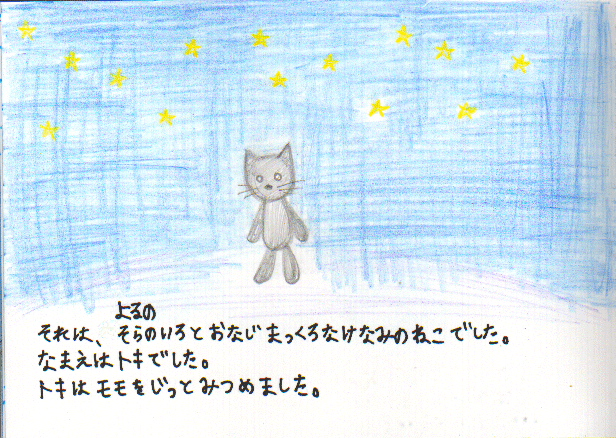 よるの
それは、そらのいろとおなじまっくろなけなみのねこでした。
なまえはトキでした。
トキはモモをじっとみつめました。